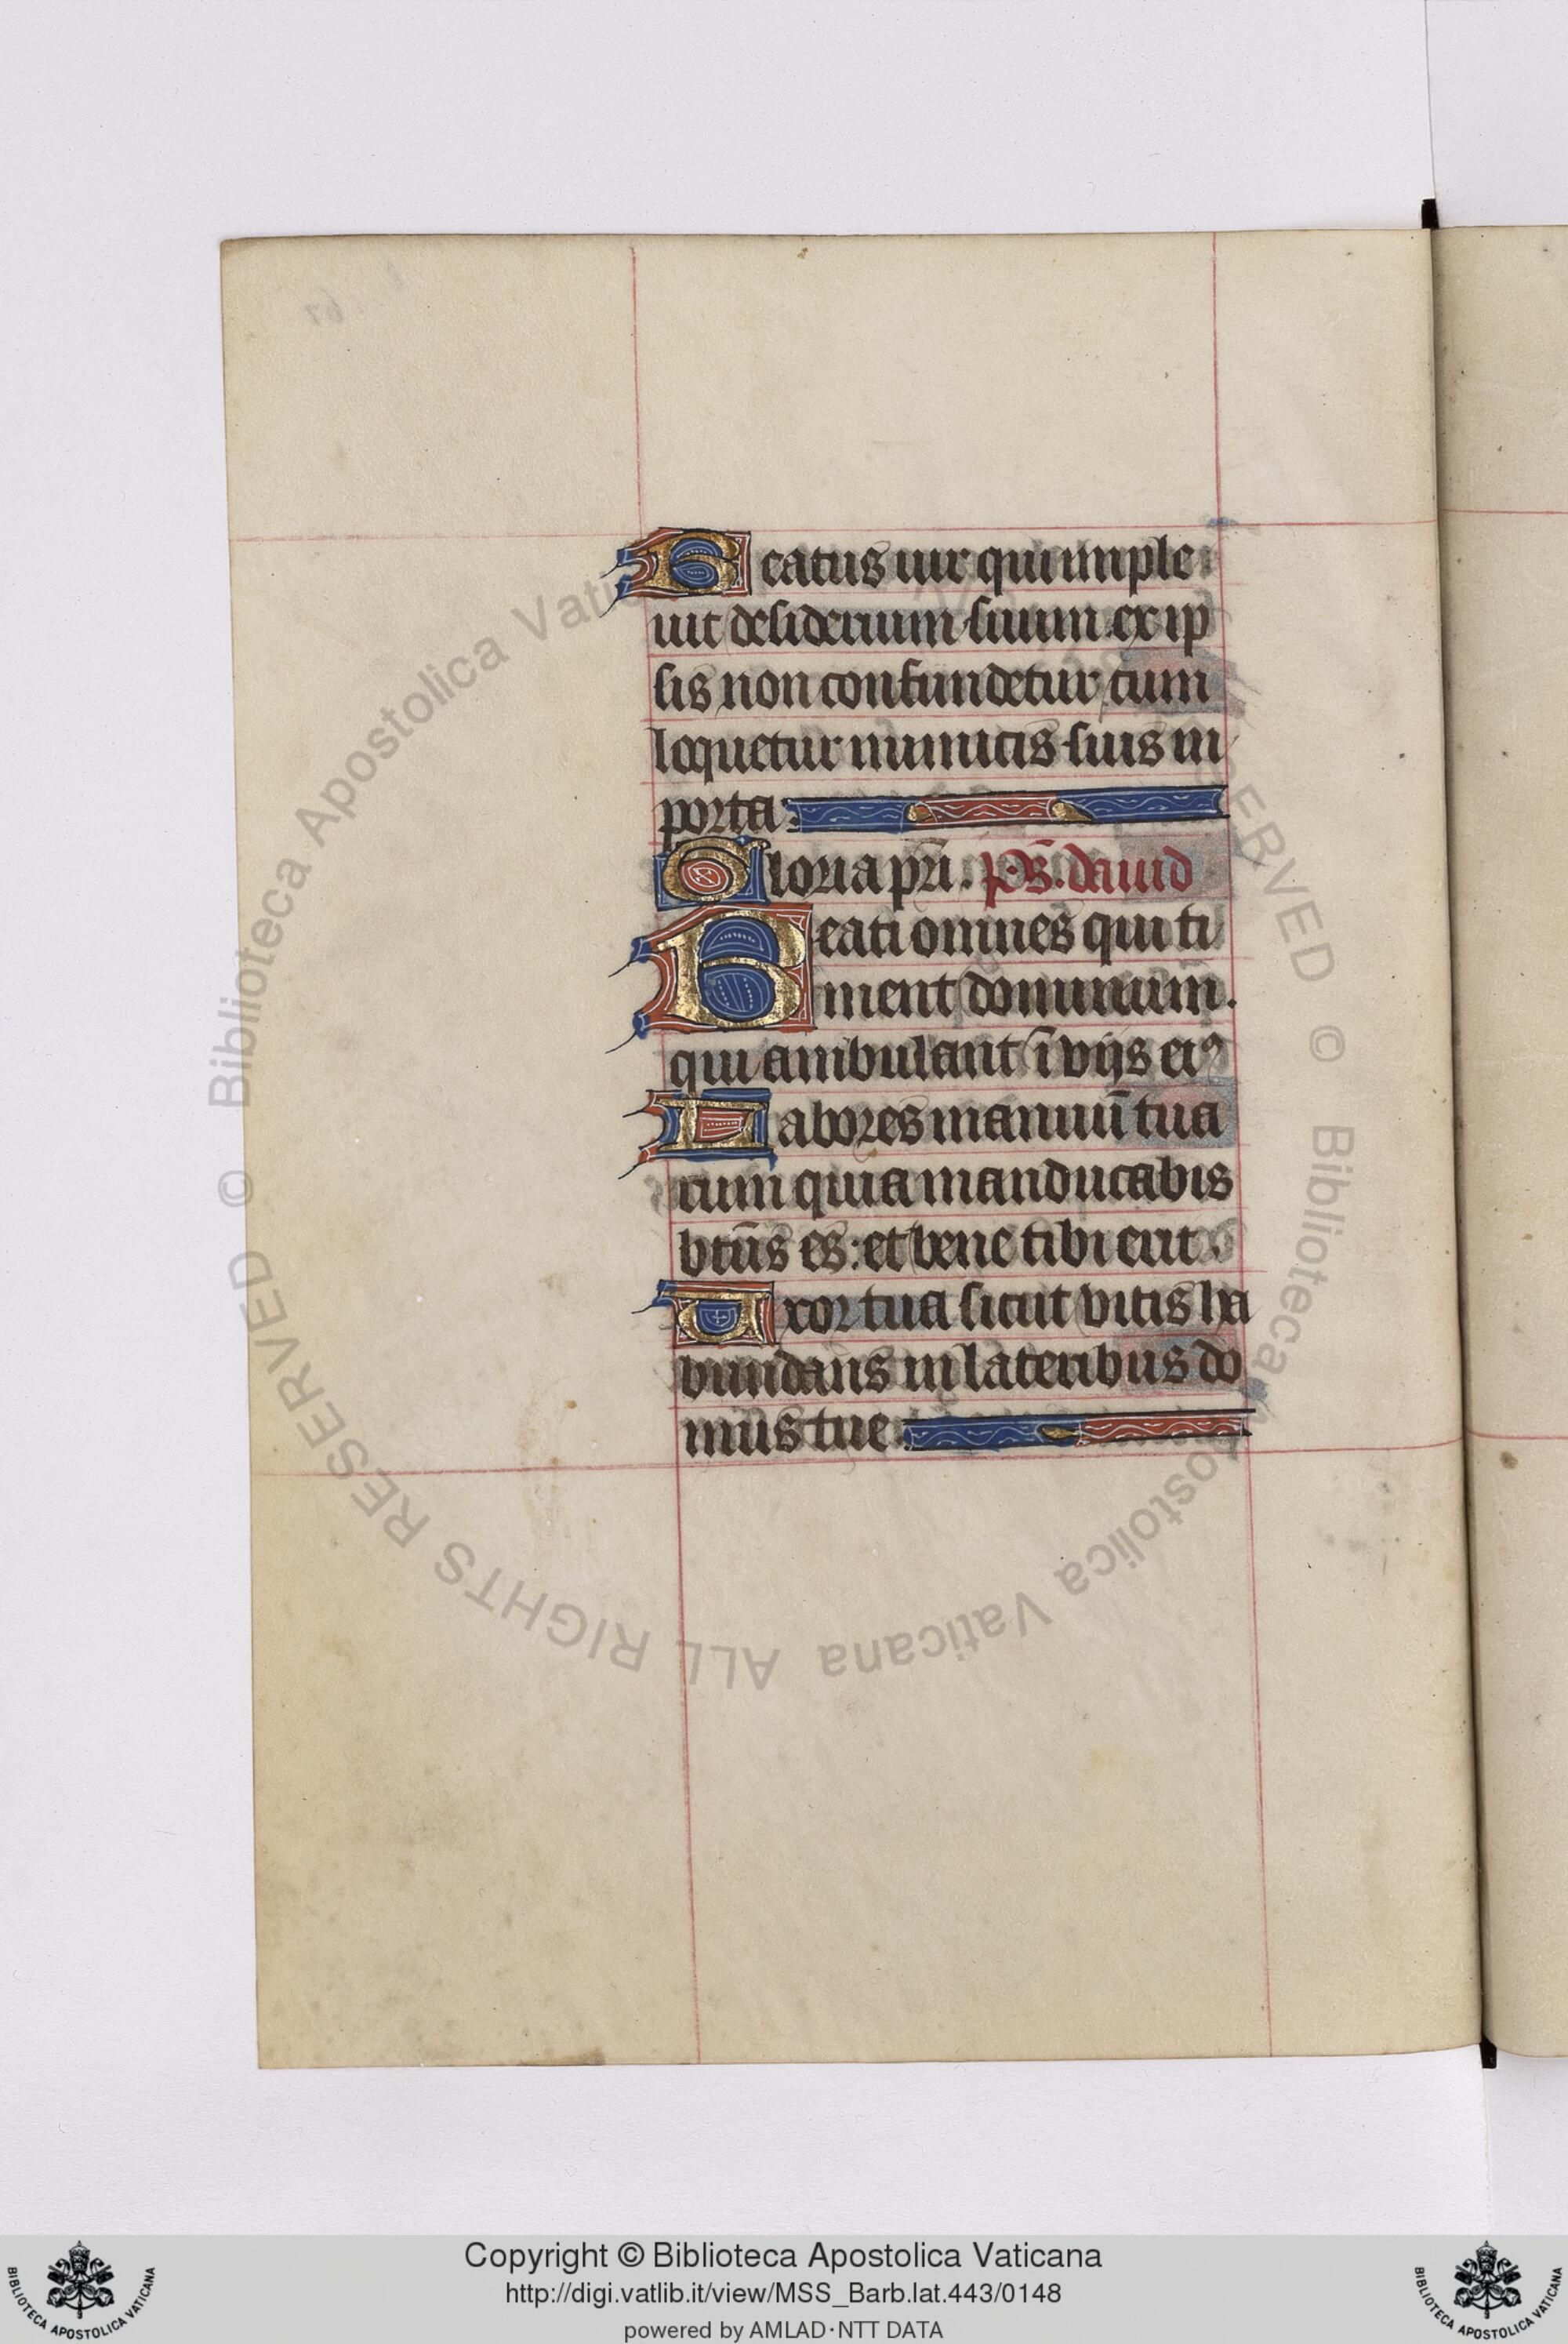 Beatus uir qui imple
uit desiderium suum ex ip
sis non confundetur cum
loquetur inimicis suis in
porta:
Gloria pr̄i. p̄s. dauid
Beati omnes qui ti
ment dominum.
qui ambulant ī vijs eiꝰ
Labores manuū tua
rum quia manducabis
btūs es: et bene tibi erit.
Uxor tua sicut vitis ha
bundans in lateribus do
mus tue.
© Biblioteca Apostolica Vaticana ALL RIGHTS RESERVED
© Biblioteca Apostolica Vaticana ALL RIGHTS RESERVED
Copyright © Biblioteca Apostolica Vaticana
http://digi.vatlib.it/view/MSS_Barb.lat.443/0148
powered by AMLAD·NTT DATA
BIBLIOTECA APOSTOLICA VATICANA
BIBLIOTECA APOSTOLICA VATICANA